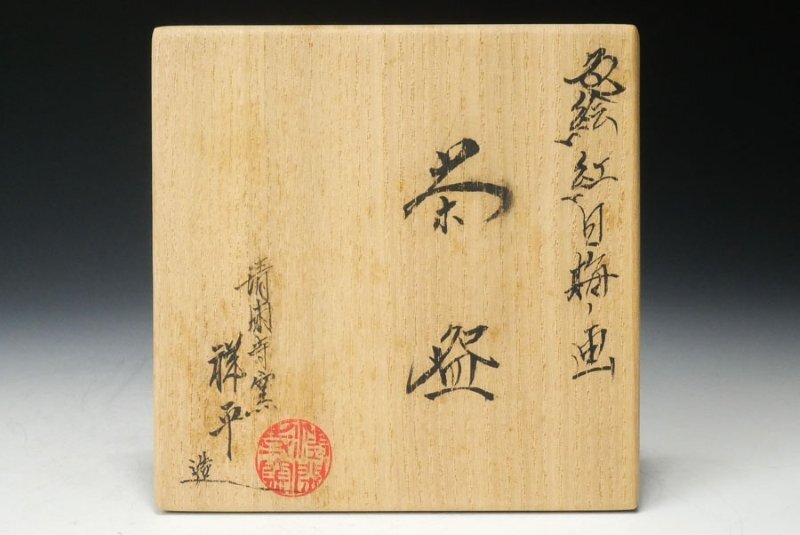 色絵紅白梅ノ画
茶盌
清閑寺窯
祥平
造